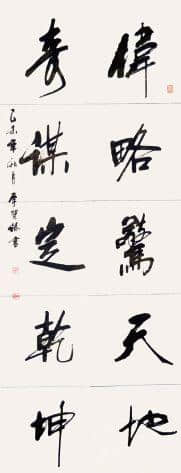 偉略驚天地
奇謀定乾坤
乙未年秋月
書